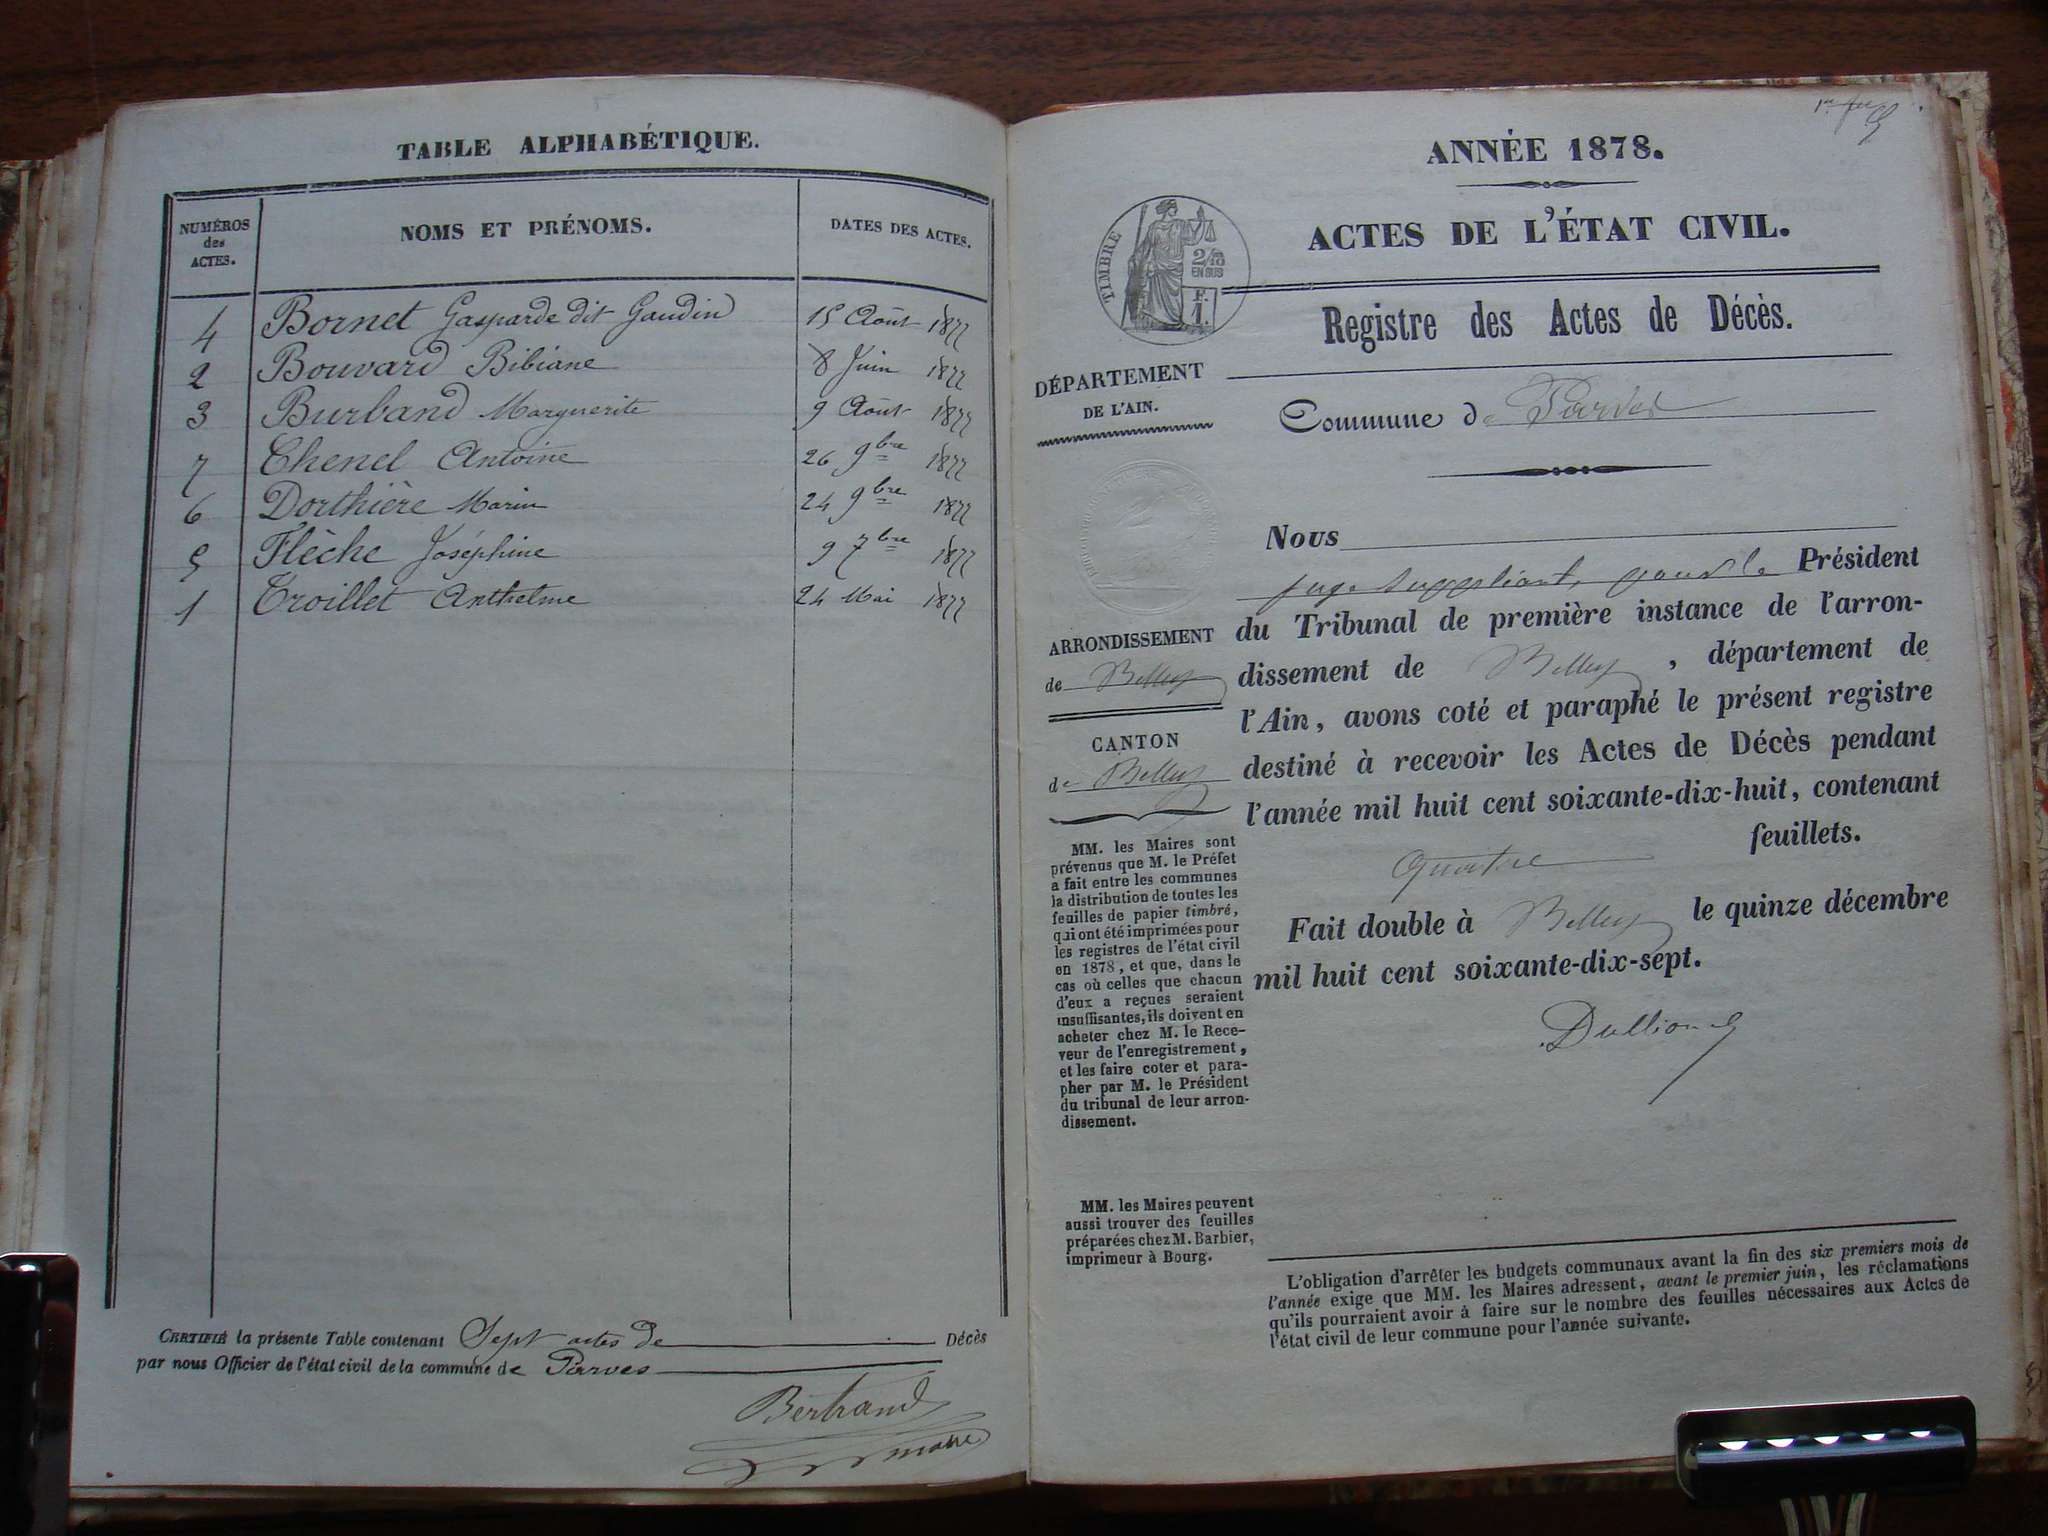 TABLE ALPHABÉTIQUE.
NUMÉROS
des
ACTES.
NOMS ET PRÉNOMS.
DATES DES ACTES.
4 Bornet Gasparde dit Gaudin 15 Août 1877
2 Bouvard Bibiane 8 Juin 1877
3 Burband Marguerite 9 Août 1877
7 Chenel Antoine 26 9bre 1877
6 Dorthière Marin 24 9bre 1877
5 Flèche Joséphine 9 7bre 1877
1 Troillet Anthelme 24 Mai 1877
CERTIFIÉ la présente Table contenant Sept actes de Décès
par nous Officier de l'état civil de la commune de Parves
Bertrand
maire
ANNÉE 1878.
ACTES DE L'ÉTAT CIVIL.
TIMBRE
2/10
EN SUS
F.
1.
Registre des Actes de Décès.
DÉPARTEMENT
DE L'AIN.
Commune de Parves
ARRONDISSEMENT
de Belley
CANTON
de Belley
MM. les Maires sont
prévenus que M. le Préfet
a fait entre les communes
la distribution de toutes les
feuilles de papier timbré,
qui ont été imprimées pour
les registres de l'état civil
en 1878, et que, dans le
cas où celles que chacun
d'eux a reçues seraient
insuffisantes, ils doivent en
acheter chez M. le Rece-
veur de l'enregistrement,
et les faire coter et para-
pher par M. le Président
du tribunal de leur arron-
dissement.
MM. les Maires peuvent
aussi trouver des feuilles
préparées chez M. Barbier,
imprimeur à Bourg.
Nous
juge suppléant, pour le Président
du Tribunal de première instance de l'arron-
dissement de Belley, département de
l'Ain, avons coté et paraphé le présent registre
destiné à recevoir les Actes de Décès pendant
l'année mil huit cent soixante-dix-huit, contenant
quatre feuillets.
Fait double à Belley le quinze décembre
mil huit cent soixante-dix-sept.
L'obligation d'arrêter les budgets communaux avant la fin des six premiers mois de
l'année exige que MM. les Maires adressent, avant le premier juin, les réclamations
qu'ils pourraient avoir à faire sur le nombre des feuilles nécessaires aux Actes de
l'état civil de leur commune pour l'année suivante.